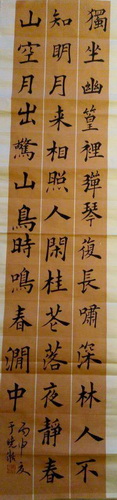 獨坐幽篁裡彈琴復長嘯深林人不
知明月来相照人閑桂花落夜静春
山空月出驚山鳥時鳴春澗中
丙申夏
于